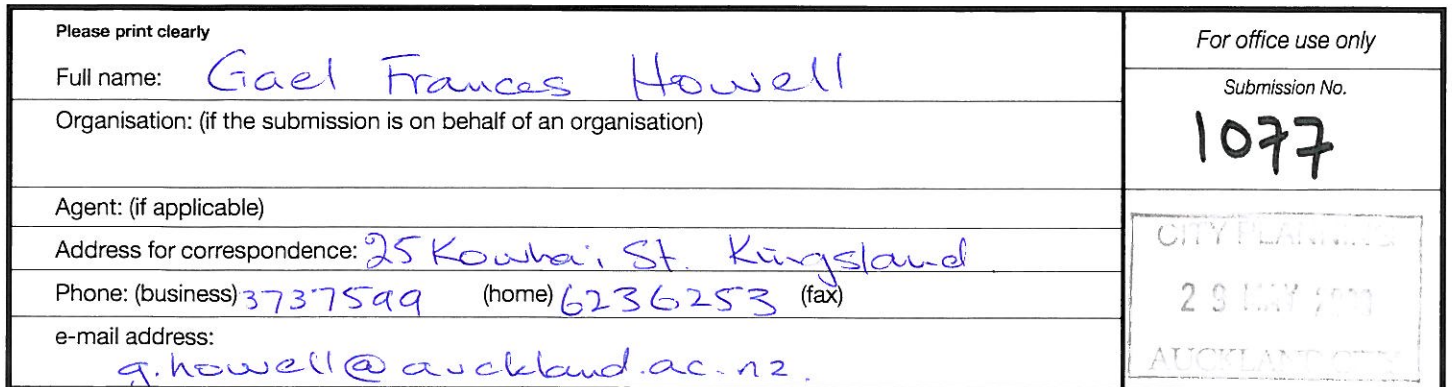 Please print clearly
Full name: Gael Frances Howell
Organisation: (if the submission is on behalf of an organisation)
Agent: (if applicable)
Address for correspondence: 25 Kowhai St. Kingsland
Phone: (business) 3737599 (home) 6236253 (fax)
e-mail address:
g.howell@auckland.ac.nz.
For office use only
Submission No.
1077
CITY PLANNING
29 MAY
AUCKLAND CITY